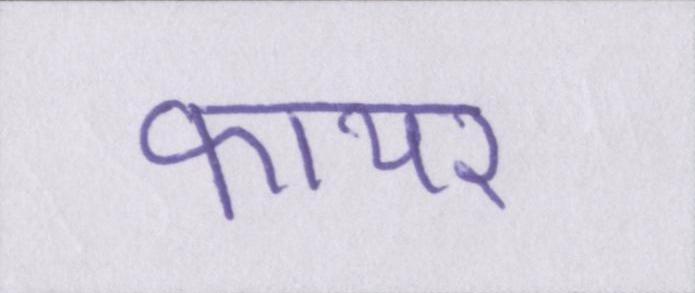 कायर